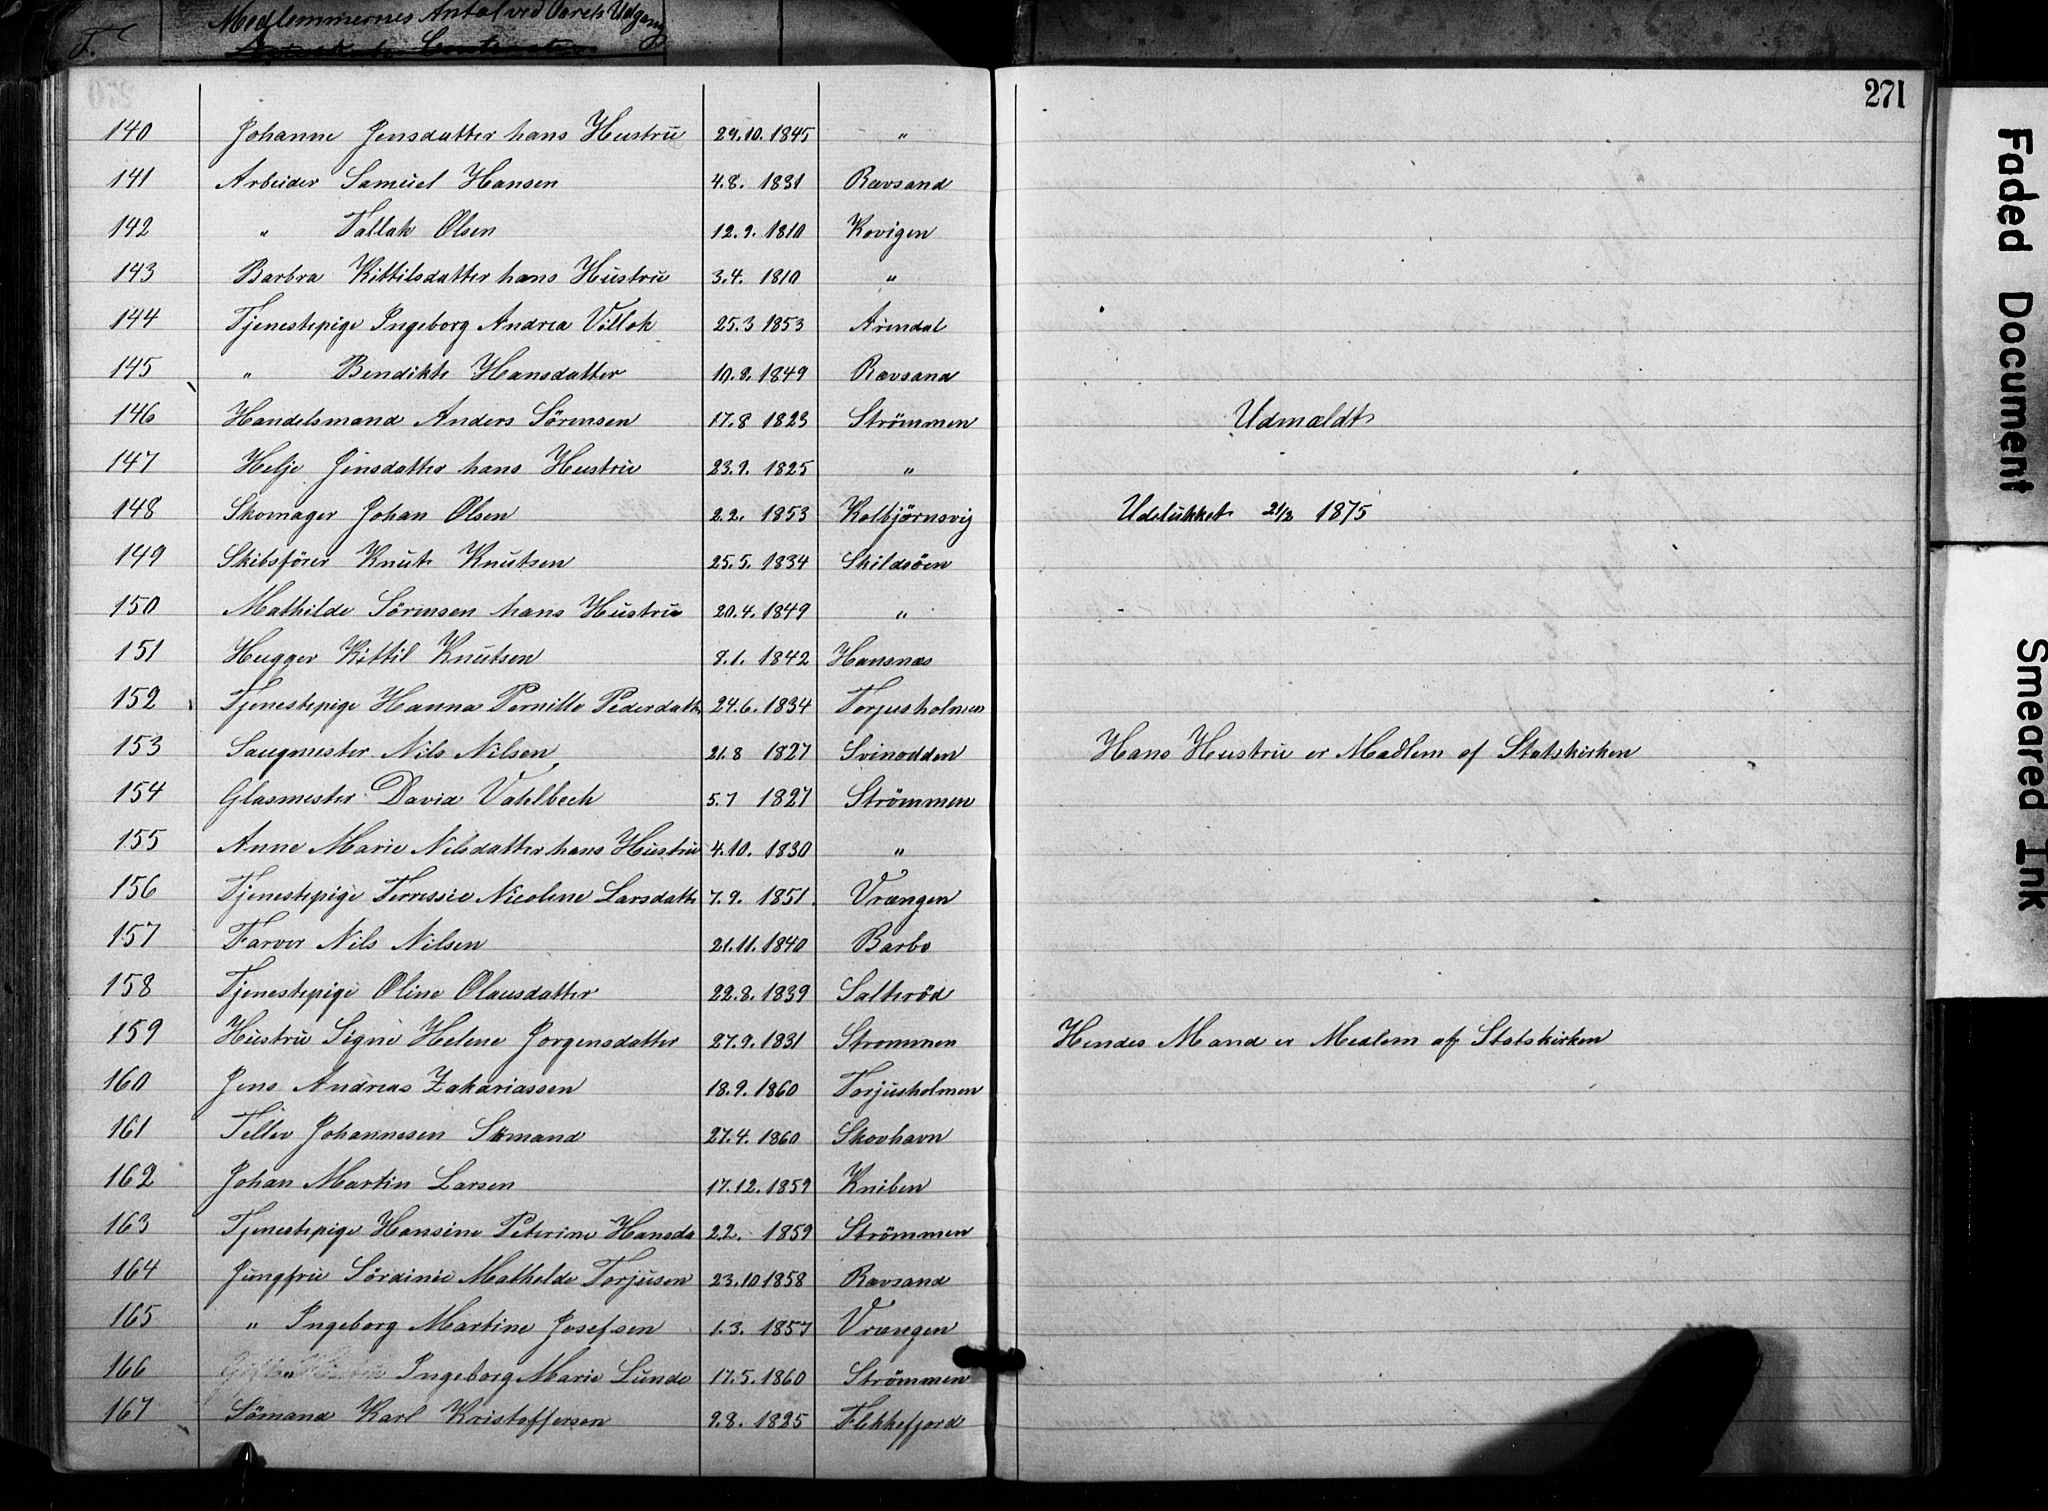 Medlemmernes Antal ved Aarets Udgang
271
140 Johanne Jensdatter hans Hustru 29.10.1845 "
141 Arbeider Samuel Hansen 4.8. 1831 Rævsand
142 " Tallak Olsen 12.9. 1810 Kovigen
143 Barbra Kittilsdatter hans Hustru 3.4. 1810 "
144 Tjenestepige Ingeborg Andrea Villok 25.3 1853 Arendal
145 " Bendikte Hansdatter 10.8. 1849 Rævsand
146 Handelsmand Anders Sörensen 17.8 1823 Strömmen Udmældt
147 Helje Jensdatter hans Hustru 23.9. 1825 "
148 Skomager Johan Olsen 2.2. 1853 Kolbjörnsvig Udelukket 21/2 1875
149 Skibsförer Knut Knutsen 25.5. 1834 Skildsöen
150 Mathilde Sörensen hans Hustru 20.4. 1849 "
151 Hugger Kittil Knutsen 8.1. 1842 Hansnæs
152 Tjenestepige Hanna Pernille Pedersdatt 24.6. 1834 Torjusholmen
153 Saugmester Nils Nilsen 21.8 1827 Svinodden Hans Hustru er Medlem af Statskirken
154 Glasmester David Vahlbech 5.7 1827 Strömmen
155 Anne Marie Nilsdatter hans Hustru 4.10. 1830 "
156 Tjenestepige Terressie Nicoline Larsdatte 7.9. 1851. Vrængen
157 Farver Nils Nilsen 21.11. 1840 Barbo
158 Tjenestepige Oline Olausdatter 22.8. 1839 Salteröd
159 Hustru Signe Helene Jorgensdatter 27.9. 1831 Strommen Hendes Mand er Medlem af Statskirken
160 Jens Andreas Zakariassen 18.9. 1860 Torjusholmen
161 Tellev Johannesen Sömand 27.4. 1860 Skovhavn
162 Johan Martin Larsen 17.12. 1859 Kniben
163 Tjenestepige Hansine Peterine Hansda 22. 1859 Strömmen
164 Jungfru Sördinie Mathilde Torjusen 23.10 1858 Rævsand
165 " Ingeborg Martine Josefsen 1.3. 1857 Vrængen
166 " Ingeborg Marie Lunde 17.5. 1860 Strömmen
167 Sömand Karl Kristoffersen 9.8. 1825 Flekkefjord
Faded Document
Smeared Ink